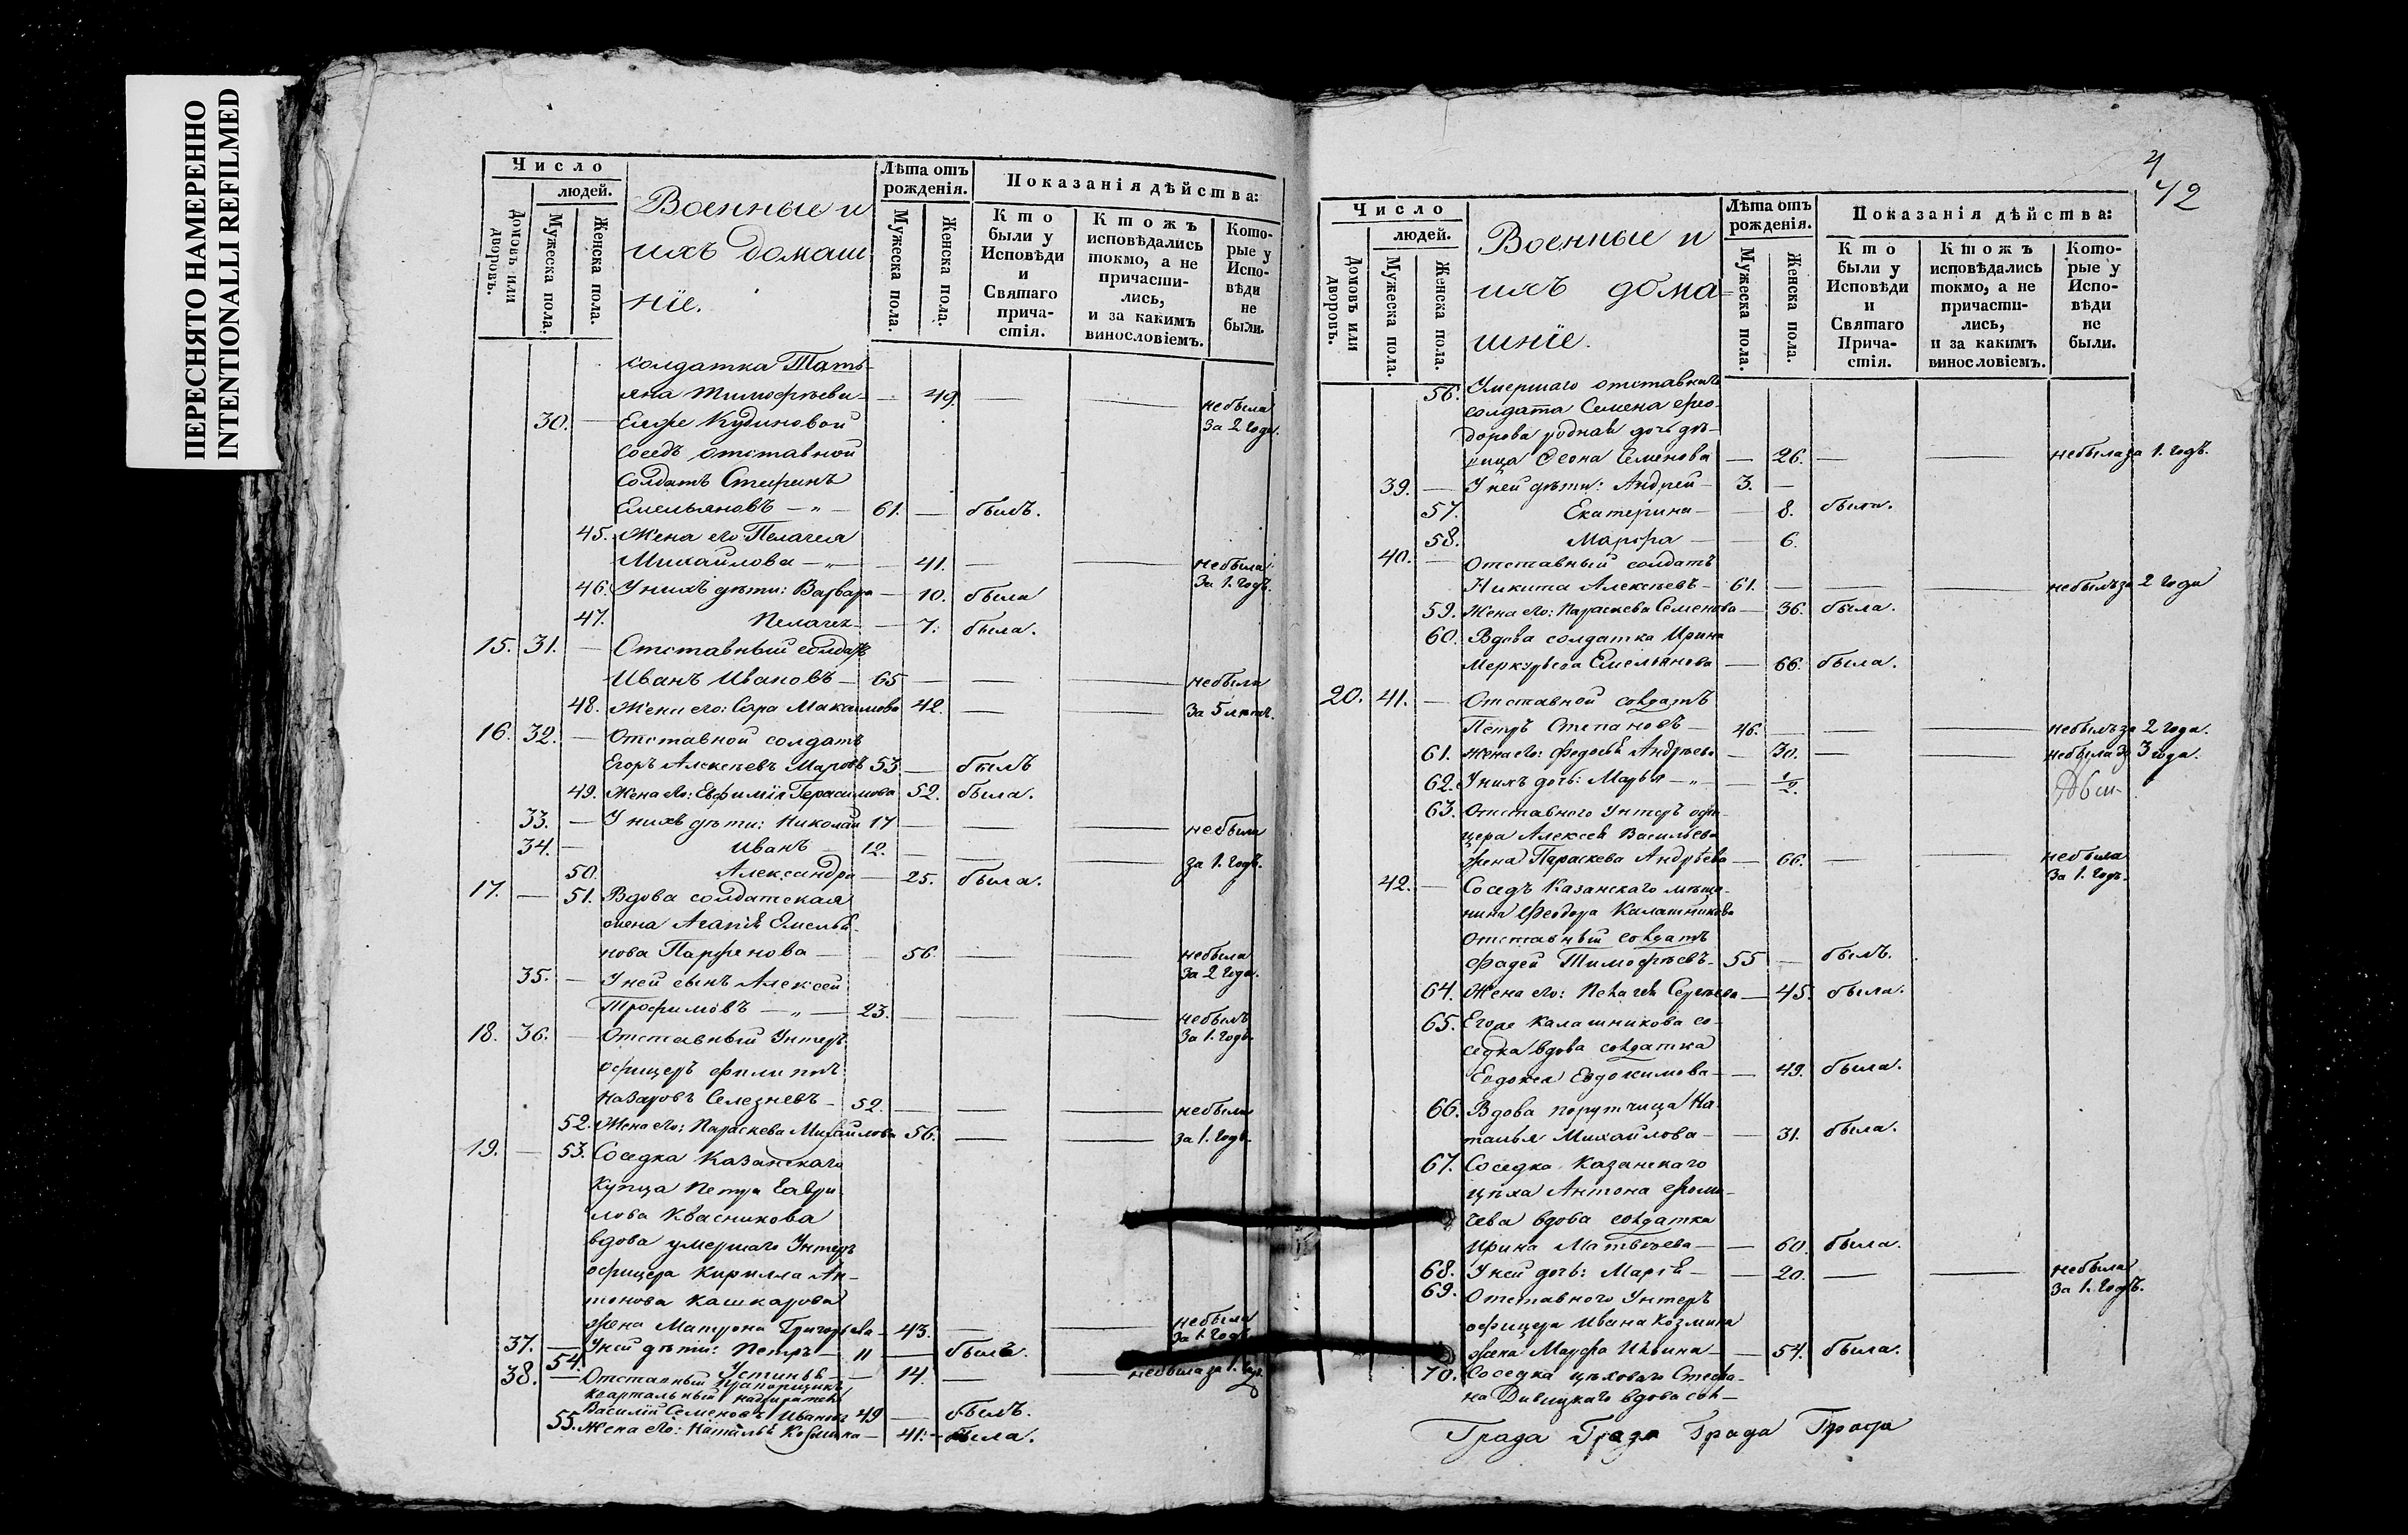 ПЕРЕСНЯТО НАМЕРЕННО
INTENTIONALLI REFILMED
Число
людей.
Домовъ или дворовъ.
Мужеска пола.
Женска пола.
Военные и
ихъ домаш
ніе.
Лѣта отъ рожденія.
Мужеска пола.
Женска пола.
Показанія дѣйства:
Кто были у Исповѣди и Святаго причастія.
Ктожъ исповѣдались токмо, а не причастились, и за какимъ винословіемъ.
Которые у Исповѣди не были.
солдатка Тать-
яна Тимофѣева — 49. — — небыла
30. — Ея же Кудиновой за 2 года.
соседъ отставной
солдатъ
Емельяновъ — „ — 61. — былъ.
45. Жена его: Пелагея
Михайлова — „ — 41. — — небыла
46. У нихъ дѣти: Варвара — 10. была за 1. годъ.
47. Пелагея — 7. была.
15. 31. — Отставный солдатъ
Иванъ Ивановъ — 65 — — — небыли
48. Жена его: Максимова 42. — — за 5 лѣтъ.
16. 32. — Отставной солдатъ
Егоръ Алексѣевъ 53 — былъ
49. Жена его: Евфимія Герасимова 52. была.
33. — У нихъ дѣти: Николай 17 — — — небыли
34. — Иванъ — 12. — — — за 1. годъ.
50. Александра — 25. была.
17. — 51. Вдова солдатская
жена Агапія Емелья-
нова Парфенова — — 56. — — небыла
35. — У ней сынъ Алексей за 2 года.
Трофимовъ — „ — 23. — — — небылъ
18. 36. — Отставный Унтеръ за 1. годъ.
офицеръ Филипъ
Назаровъ Селезневъ — 52. — — — небыли
52. Жена его: Параскева Михайлова 56. — — за 1. годъ.
19. — 53. Соседка Казанскаго
купца Петра Гаври-
лова Квасникова
вдова умершаго Унтеръ
офицера Кирилла Ан-
тонова Кашкарова
жена Матрона Григорьева — 43. — — небыла
за 1. годъ
37. — У ней дѣти: Петръ — 11 — былъ.
54. Устинья — — 14. — небыла за 1. годъ.
38. — Отставный прапорщикъ
квартальный надзиратель
Василій Семеновъ Ивановъ 49 — былъ.
55. Жена его: Наталья — 41. — была.
4
42
Число
людей.
Домовъ или дворовъ.
Мужеска пола.
Женска пола.
Военные и
ихъ дома-
шніе.
Лѣта отъ рожденія.
Мужеска пола.
Женска пола.
Показанія дѣйства:
Кто были у Исповѣди и Святаго Причастія.
Ктожъ исповѣдались токмо, а не причастились, и за какимъ винословіемъ.
Которые у Исповѣди не были.
56. Умершаго отставнаго
солдата Семена Фео-
дорова родная дочь дѣ-
вица Семенова — 26. — — небыла за 1. годъ.
39. — У ней дѣти: Андрей — 3. —
57. Екатерина — — 8. была.
58. Марфа — — 6.
40. — Отставный солдатъ
Никита Алексѣевъ — 61. — — — небылъ за 2 года
59. Жена его: Параскева Семенова — 36. была.
60. Вдова солдатка Ирина
Меркурьева Емельянова — 66. была.
20. 41. — Отставной солдатъ
Петръ Степановъ — 46. — — — небылъ за 2 года.
61. Жена его: Федосья Андреева — 30. — — небыла за 3 года.
62. У нихъ дочь: Марья — „ — — 1/2.
63. Отставного Унтеръ офи-
цера Алексея Васильева
жена Параскева Андрѣева — 66. — — небыла
42. — Соседъ Казанскаго мѣща- за 1. годъ.
нина Феодора Калашникова
отставный солдатъ
Фадей Тимофѣевъ — 55 — былъ.
64. Жена его: Пелагея Сергѣева — 45. была.
65. Егоже Калашникова со-
седка вдова солдатка
Евдокея Евдокимова — — 49. была.
66. Вдова порутчица На-
талья Михайлова — — 31. была.
67. Соседка Казанскаго
цѣха Антона Фоми-
чева вдова солдатка
Ирина Матвѣева — — 60. была.
68. У ней дочь: Марья — — 20. — — небыла
69. Отставного Унтеръ за 1. годъ.
офицера Ивана Козмина
жена Марфа Ильина — 54. была.
70. Соседка цѣховаго Степа-
на Дивицкаго вдова сол-
Града Града Града Града